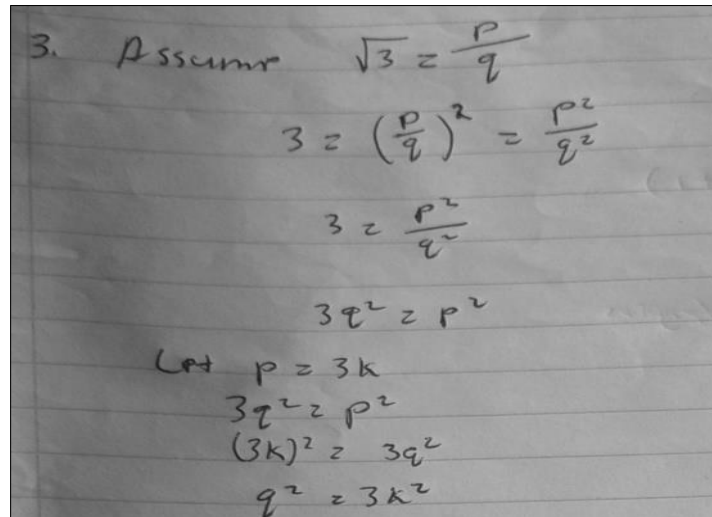 3. Assume √3 = p/q
3 = (p/q)² = p²/q²
3 = p²/q²
3q² = p²
Let p = 3k
3q² = p²
(3k)² = 3q²
q² = 3k²